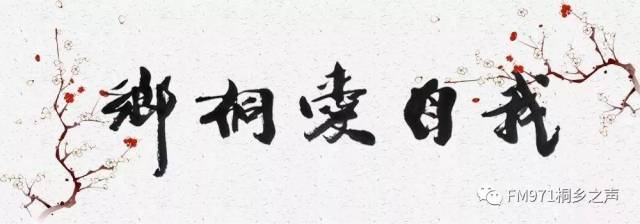 我自愛桐鄉
FM971桐乡之声